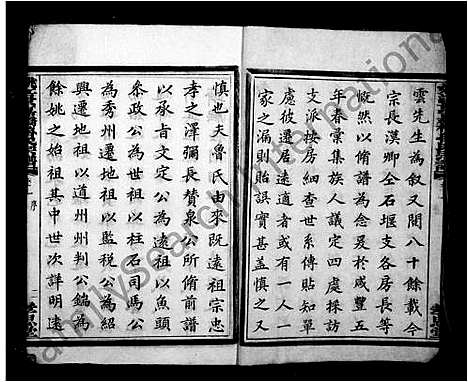 雲先生爲叙又閱八十餘載今
宗長漢卿仝石堰支各房長等
慨然以脩譜爲念爰於咸豐五
年春彙集族人議定四處採訪
支派按房細查世系傳貼知單
處彼遷居遠遒者或有一人一
家之漏則貽誤實甚盖慎之又
慎也夫魯氏由來既遠祖宗忠
孝之澤彌長贊泉公所脩前譜
以承旨文定公爲遠祖以魚頭
叅政公爲世祖以柱石司馬公
爲秀州遷地祖以監税公爲紹
興遷地祖以道州州判公鎬爲
餘姚之始祖其中世次詳明遠
序
FamilySearch International